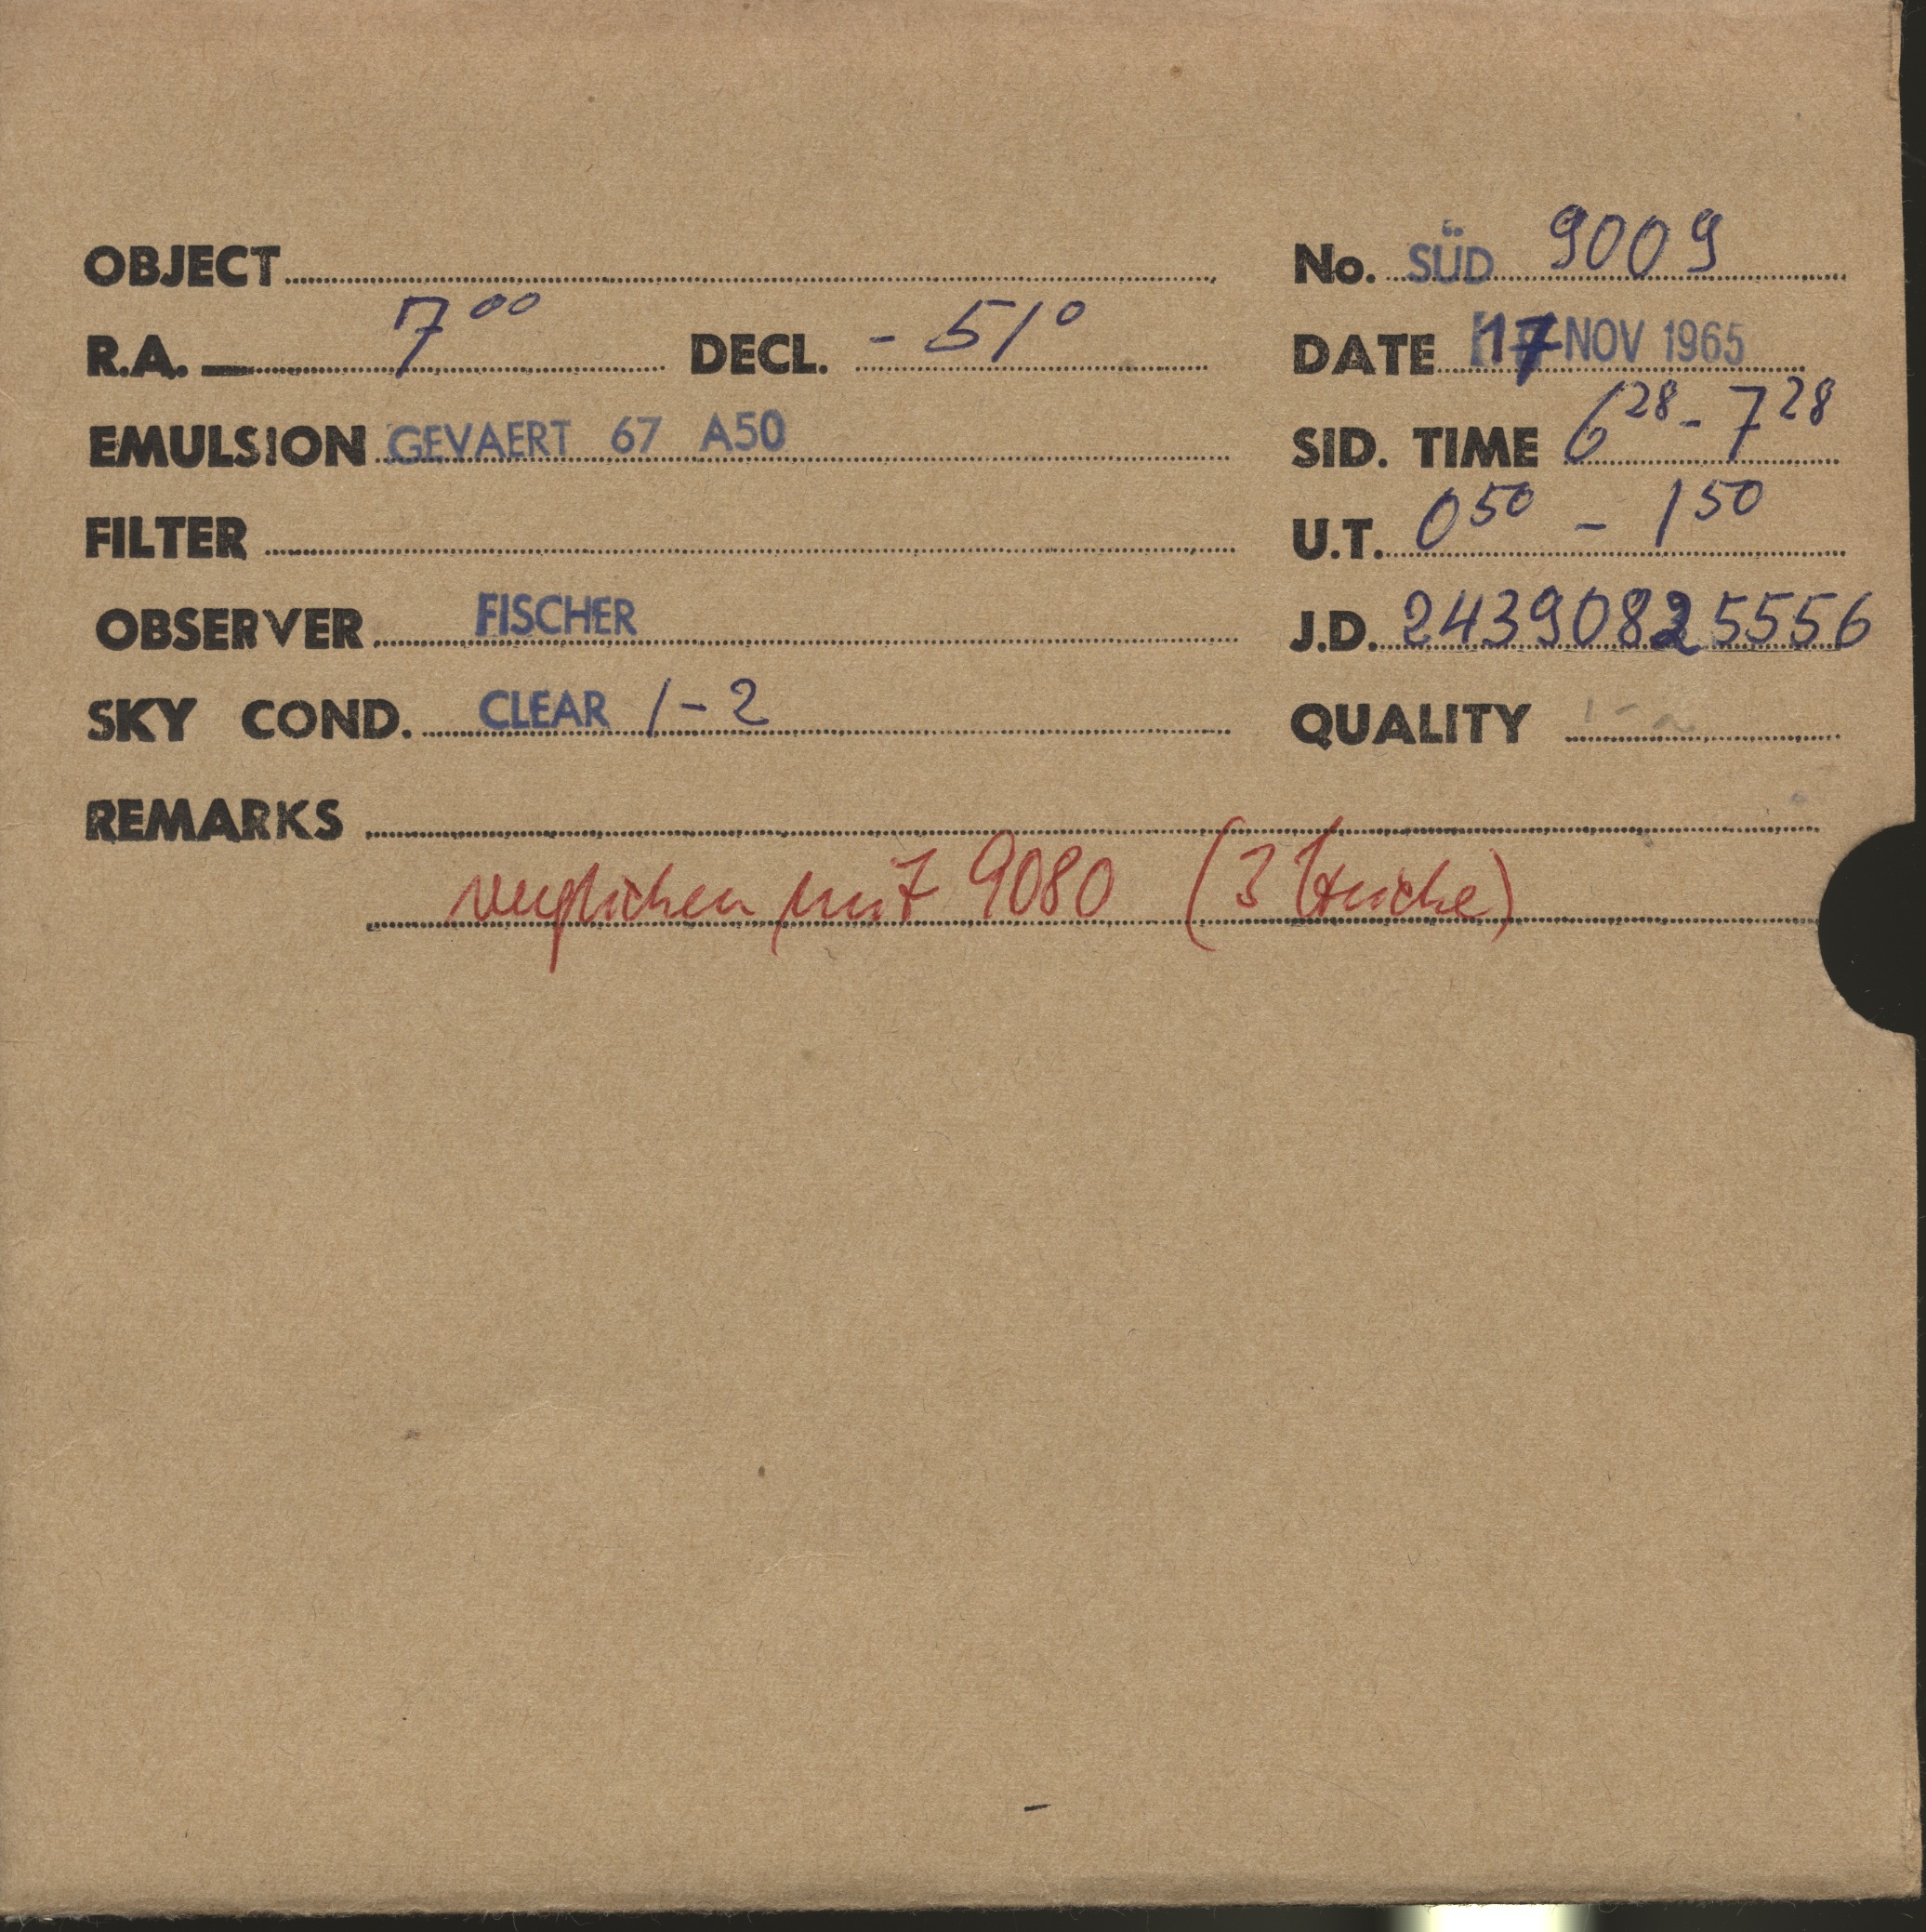 OBJECT
No. SÜD 9009
R.A. 7⁰⁰ DECL. - 51°
DATE 17 NOV 1965
EMULSION GEVAERT 67 A50
SID. TIME 6²⁸ - 7²⁸
FILTER
U.T. 0⁵⁰ - 1⁵⁰
OBSERVER FISCHER
J.D. 24390825556
SKY COND. CLEAR 1-2
QUALITY 1-2
REMARKS
verglichen mit 9080 (3 Striche)